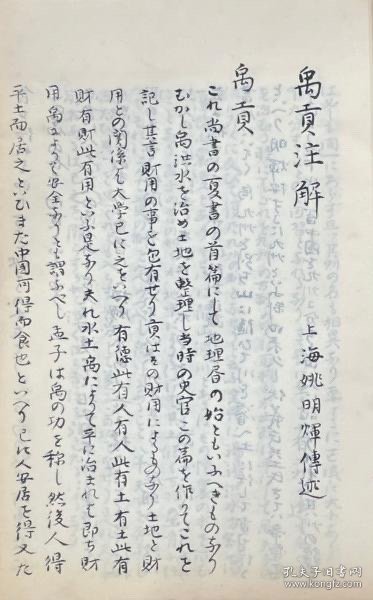 禹貢注解
上海姚明煇傳述
禹貢
これ尚書の夏書の首篇にして地理書の始ともいふへきものなり
むかし禹洪水を治め土地を整理し当時の史官この篇を作りてこれを
記し其言財用の事を包有せり貢はその財用によるものなり土地と財
用との関係は大学已に之をいへり有徳此有人有人此有土有土此有
財有財此有用といふ是なり夫れ水土禹によりて平に治まれは即ち財
用禹によりて安全なりとも謂ふべし孟子は禹の功を称し然後人得
平土而居之といひまた中国可得而食也といへり已に人安居を得又た
孔夫子旧书网